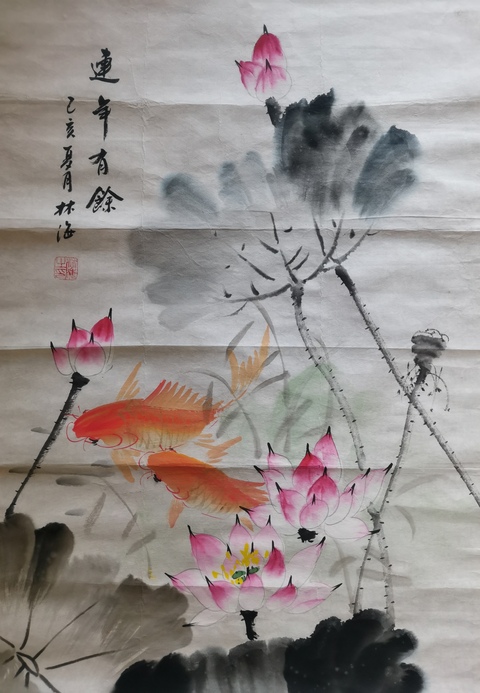 連年有餘
乙亥夏月林海